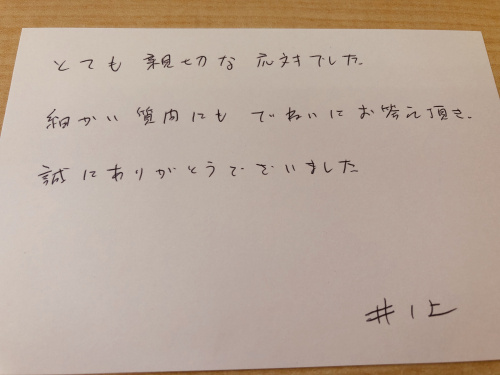 とても 親切な 応対でした。
細かい 質問にも ていねいに お答え頂き、
誠に ありがとうございました
井上